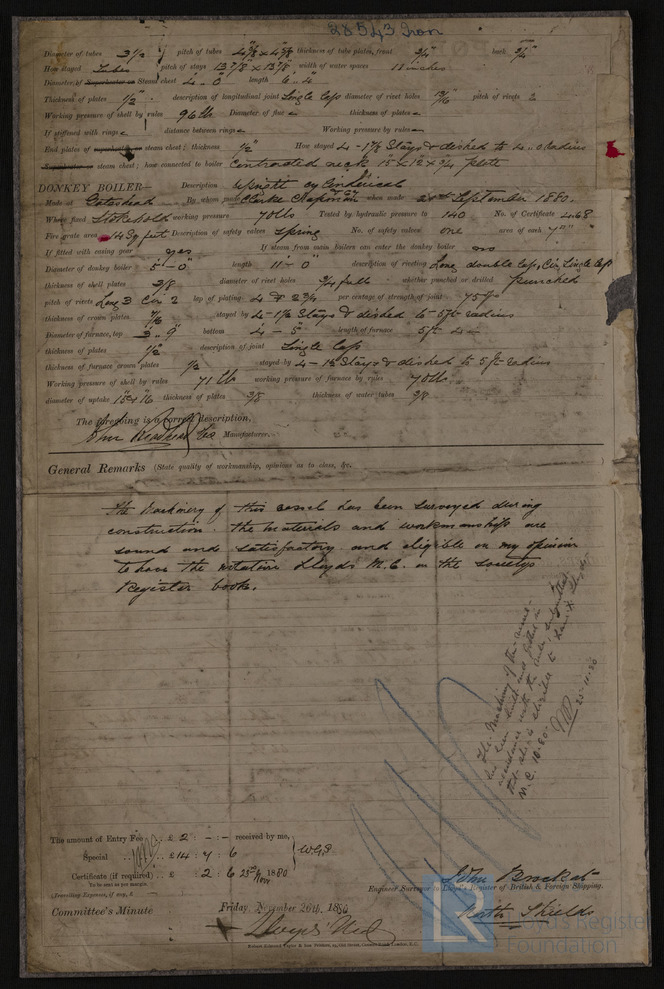 28543 Iron
Diameter of tubes 3 1/2 pitch of tubes 4 5/8 x 4 5/8 thickness of tube plates, front 3/4" back 3/4"
How stayed Tubes pitch of stays 13 7/8 x 13 7/8 width of water spaces 11 inches
Diameter of Superheater or Steam chest 4.. 0" length 6..
Thickness of plates 1/2" description of longitudinal joint Single Lap diameter of rivet holes 13/16 pitch of rivets 2
Working pressure of shell by rules 96 lb Diameter of flue thickness of plates
If stiffened with rings distance between rings Working pressure by rules
End plates of superheater or steam chest; thickness 1/2" How stayed 4 - 1 7/8 Stays & dished to 4.. 0 radius
Superheater or steam chest; how connected to boiler Contracted neck 15 x 12 x 3/4 plate
DONKEY BOILER— Description Upright Cylindrical
Made at Gateshead By whom made Clarke Chapman & Co when made 21st September 1880.
Where fixed Stokehold working pressure 70 lbs Tested by hydraulic pressure to 140 No. of Certificate 468
Fire grate area 14 Sq feet Description of safety valves Spring No. of safety valves one area of each 7"
If fitted with easing gear yes If steam from main boilers can enter the donkey boiler no
Diameter of donkey boiler 5'-0" length 11'-0" description of riveting Long double Lap, Cir. Single Lap
thickness of shell plates 3/8 diameter of rivet holes 3/4 full whether punched or drilled punched
pitch of rivets Long 3 Cir 2 lap of plating 4 & 2 3/4 per centage of strength of joint 75%
thickness of crown plates 7/16 stayed by 4 - 1 7/8 Stays & dished to 5 ft radius
Diameter of furnace, top 3.. 9" bottom 4 - 5" length of furnace 5 ft 4
thickness of plates 1/2 description of joint Single Lap
thickness of furnace crown plates 1/2 stayed by 4 - 1 7/8 Stays & dished to 5 ft radius
Working pressure of shell by rules 71 lb working pressure of furnace by rules 70 lb.
diameter of uptake 15 x 16 thickness of plates 3/8 thickness of water tubes 3/8
The foregoing is a correct description,
John Readhead & Co Manufacturer.
General Remarks (State quality of workmanship, opinions as to class, &c.
The Machinery of this vessel has been surveyed during
construction. the materials and workmanship are
sound and satisfactory and eligible in my opinion
to have the notation Lloyds M.C. in the societys
Register book.
The Machinery of this vessel
has been built and fitted in
accordance with the rules, submitted
that she is eligible to have
M.C. 10.80.
22-11-80
The amount of Entry Fee .. £ 2 : - : - received by me,
Special .. £14 : 7 : 6 W.G.S.
Certificate (if required) .. £ : 2 : 6 23rd Nov 1880
To be sent as per margin.
(Travelling Expenses, if any, £ )
John Brockat
Engineer Surveyor to Lloyd's Register of British & Foreign Shipping.
North Shields
Committee's Minute Friday, November 26th, 1880
+ Lloyds' M.C.
LR
Lloyd's Register
Foundation